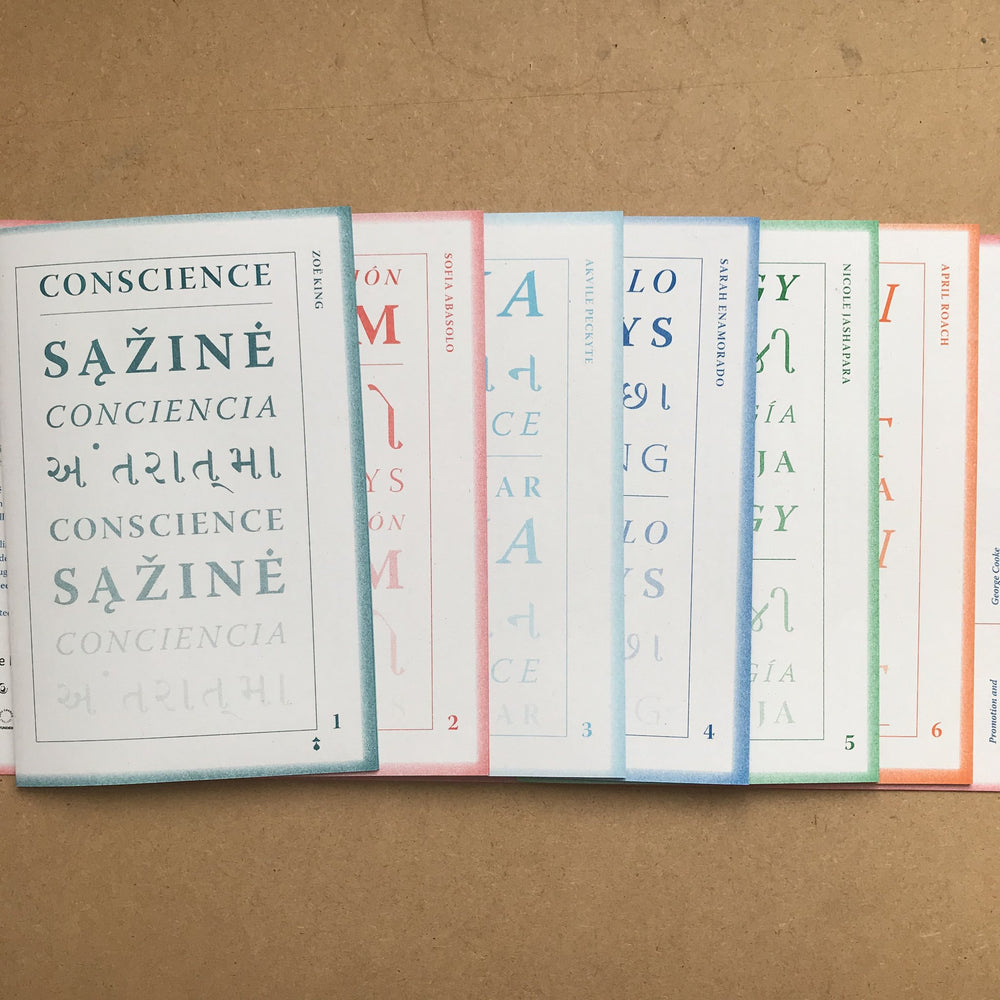 CONSCIENCE
SĄŽINĖ
CONCIENCIA
અંતરાત્મા
CONSCIENCE
SĄŽINĖ
CONCIENCIA
અંતરાત્મા
ZOË KING
1
IÓN
M
YS
IÓN
M
SOFIA ABASOLO
2
A
ન
CE
AR
A
ન
CE
AR
AKVILE PECKYTE
3
LO
YS
છા
NG
LO
YS
છા
G
SARAH ENAMORADO
4
GY
GÍA
JA
GY
GÍA
JA
NICOLE JASHAPARA
5
I
A
I
APRIL ROACH
6
George Cooke
Promotion and